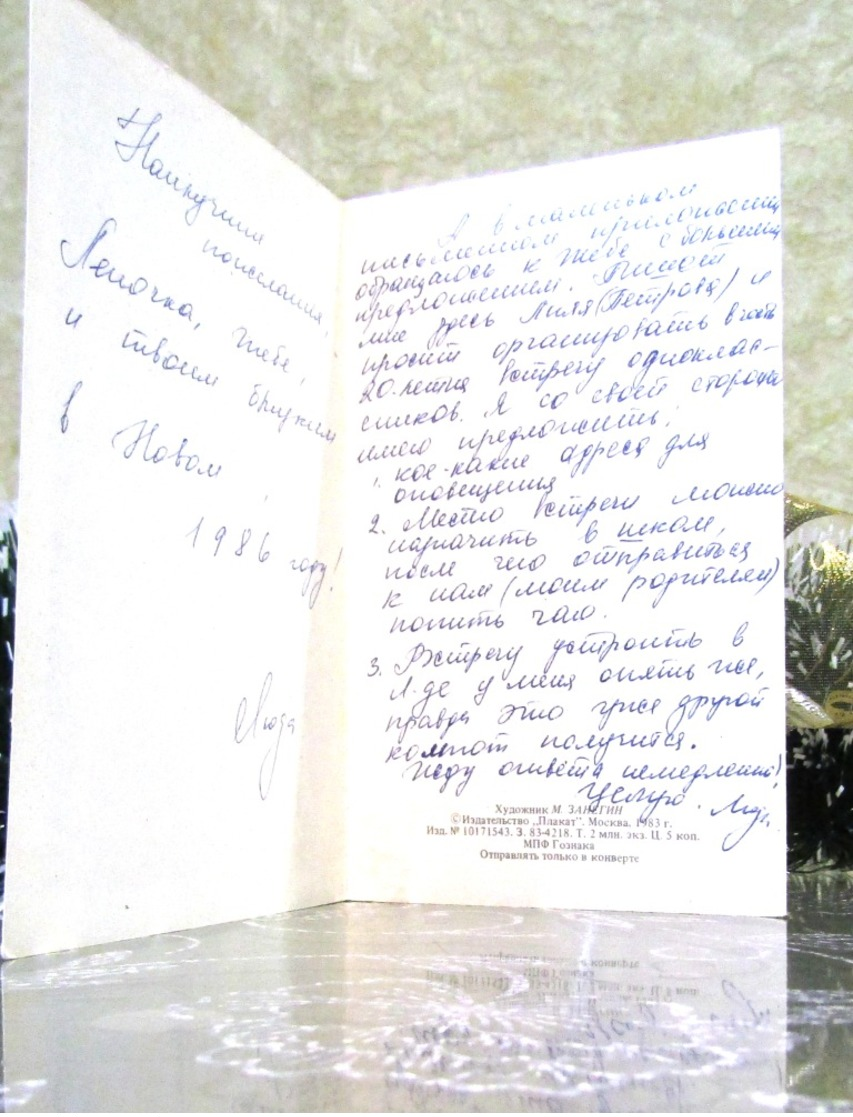 Наилучшие
пожелания,
Леночка, тебе,
и твоим близким
в Новом
1986 году!
Люда
А в маленьком
письменном приложении
обращаюсь к тебе с большим
предложением. Пишет
мне здесь Лиля (Петрова) и
просит организовать в честь
20-летия встречу одноклас-
сников. Я со своей стороны
имею предложить:
1. кое-какие адреса для
оповещения
2. Место встречи можно
назначить в школе,
после чего отправиться
к нам (моим родителям)
попить чаю.
3. Встречу устроить в
Л-де у меня опять же,
правда это уже другой
компот получится.
Жду ответа немедленно!
Целую. Люда.
Художник М. ЗАНЕГИН
© Издательство „Плакат". Москва, 1983 г.
Изд. № 10171543. З. 83-4218. Т. 2 млн. экз. Ц. 5 коп.
МПФ Гознака
Отправлять только в конверте